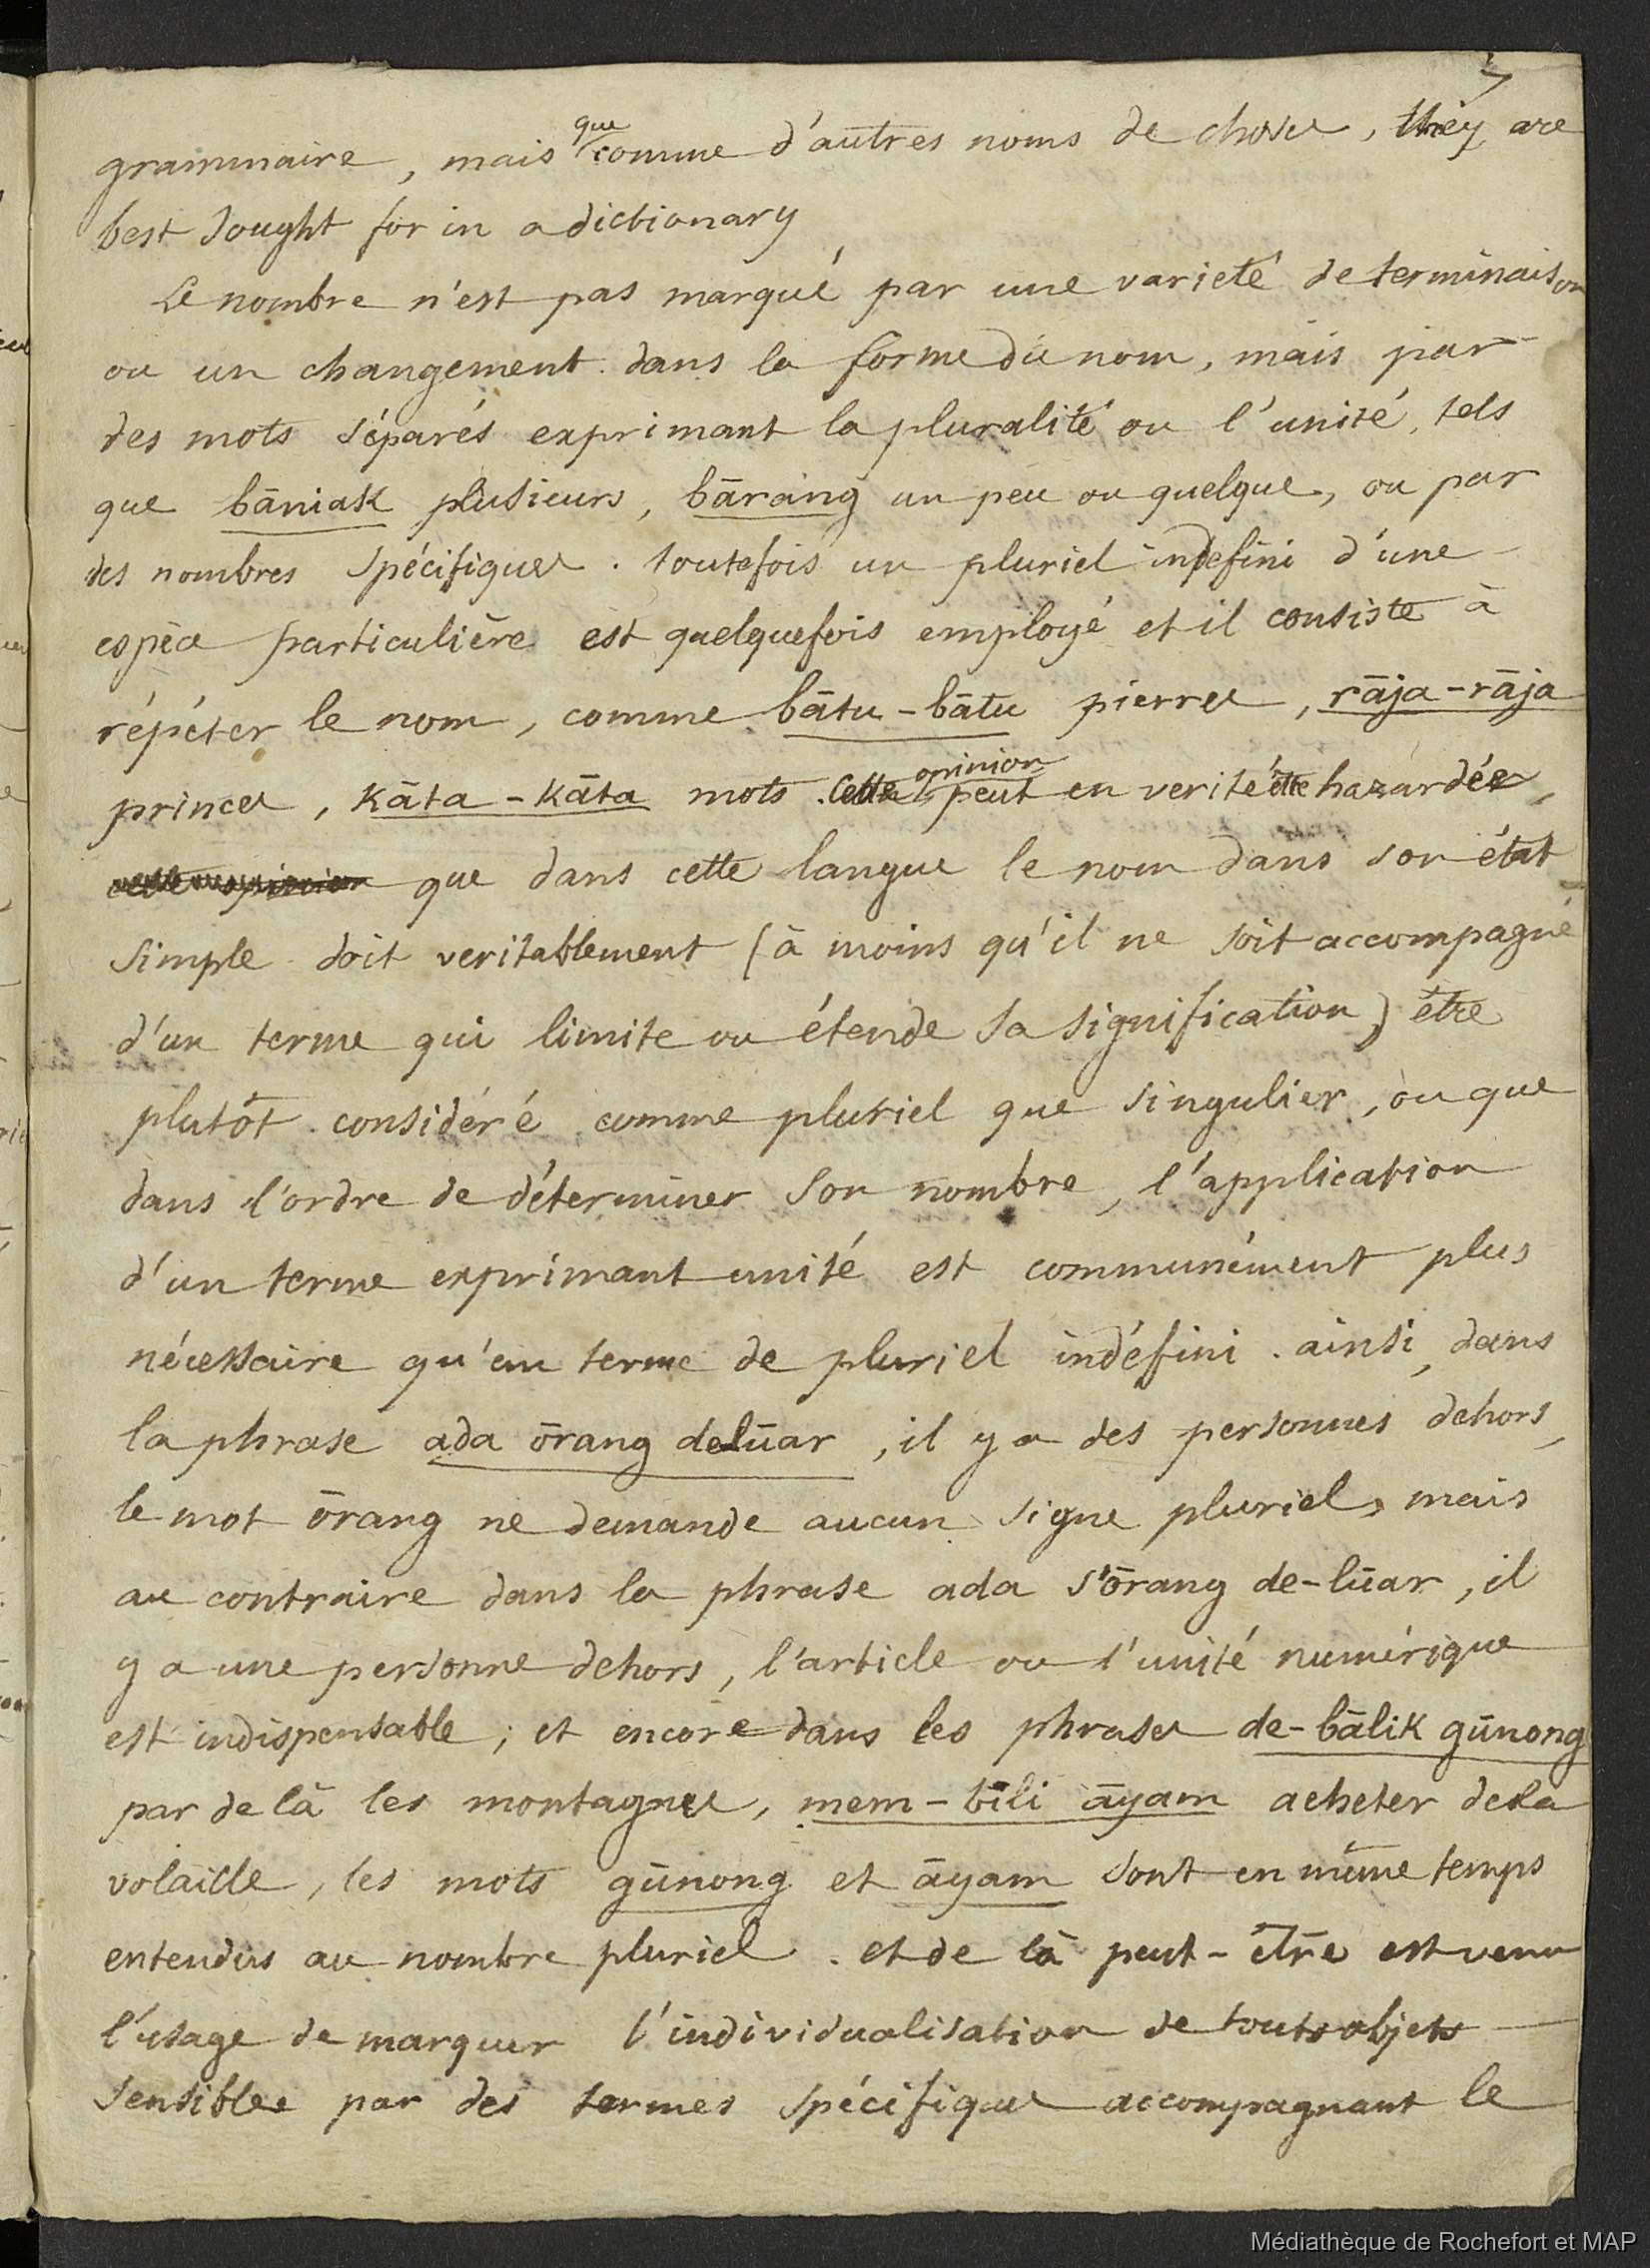 7
grammaire, mais que comme d'autres noms de choses, they are
best sought for in a dictionary
Le nombre n'est pas marqué par une varieté de terminaison
ou un changement dans la forme du nom, mais par
des mots séparés exprimant la pluralité ou l'unité, tels
que bāniak plusieurs, bārang un peu ou quelque, ou par
des nombres spécifiques. toutefois un pluriel indefini d'une
espèce particulière est quelquefois employé et il consiste à
répéter le nom, comme bātu-bātu pierres, rāja-rāja
princes, kāta-kāta mots. Cette opinion peut en verité être hazardée,
cette opinion que dans cette langue le nom dans son état
simple doit veritablement (à moins qu'il ne soit accompagné
d'un terme qui limite ou étende sa signification) être
plutôt considéré comme pluriel que singulier, ou que
dans l'ordre de déterminer son nombre, l'application
d'un terme exprimant unité est communément plus
nécessaire qu'un terme de pluriel indéfini. ainsi, dans
la phrase ada ōrang delūar, il y a des personnes dehors,
le mot ōrang ne demande aucun signe pluriel, mais
au contraire dans la phrase ada s'ōrang de-lūar, il
y a une personne dehors, l'article ou l'unité numérique
est indispensable; et encore dans les phrases de-bālik gūnong
par de là les montagnes, mem-bīli āyam acheter de la
volaille, les mots gūnong et āyam sont en même temps
entendus au nombre pluriel. et de là peut-être est venu
l'usage de marquer l'individualisation de touts objets
sensibles par des termes spécifiques accompagnant le
Médiathèque de Rochefort et MAP